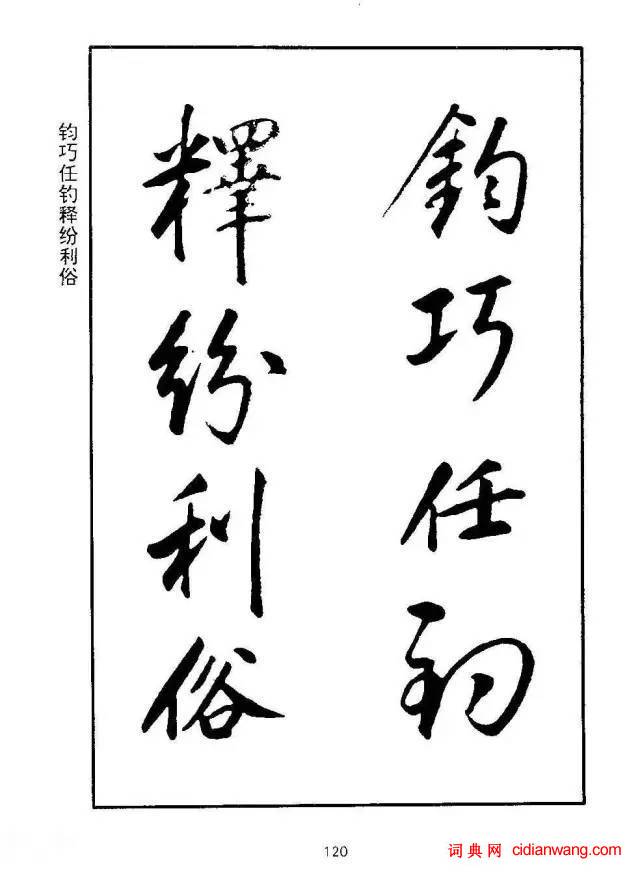 鈞巧任釣
釋紛利俗
钧巧任钓释纷利俗
120
词典网 cidianwang.com